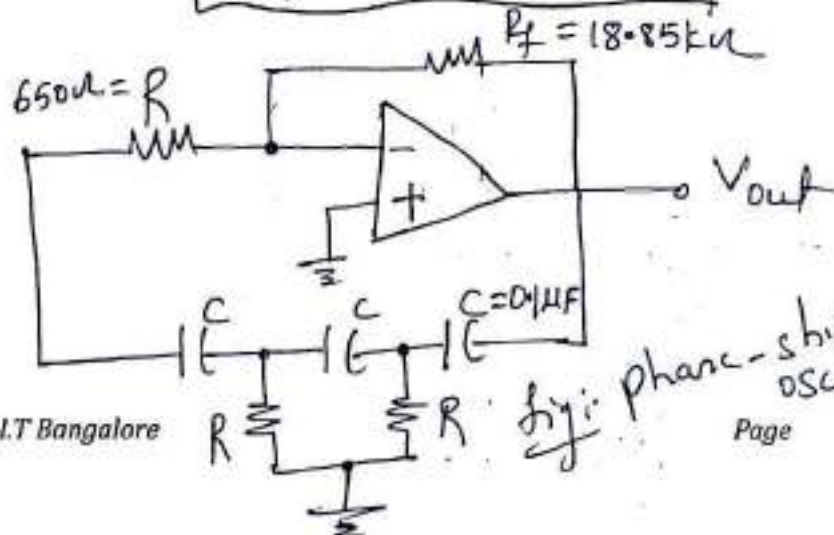 Rf = 18.85kΩ
650Ω = R
−
+
Vout
C
C
C=0.1µF
R
R
fig: phase-shi
osc
I.T Bangalore
Page